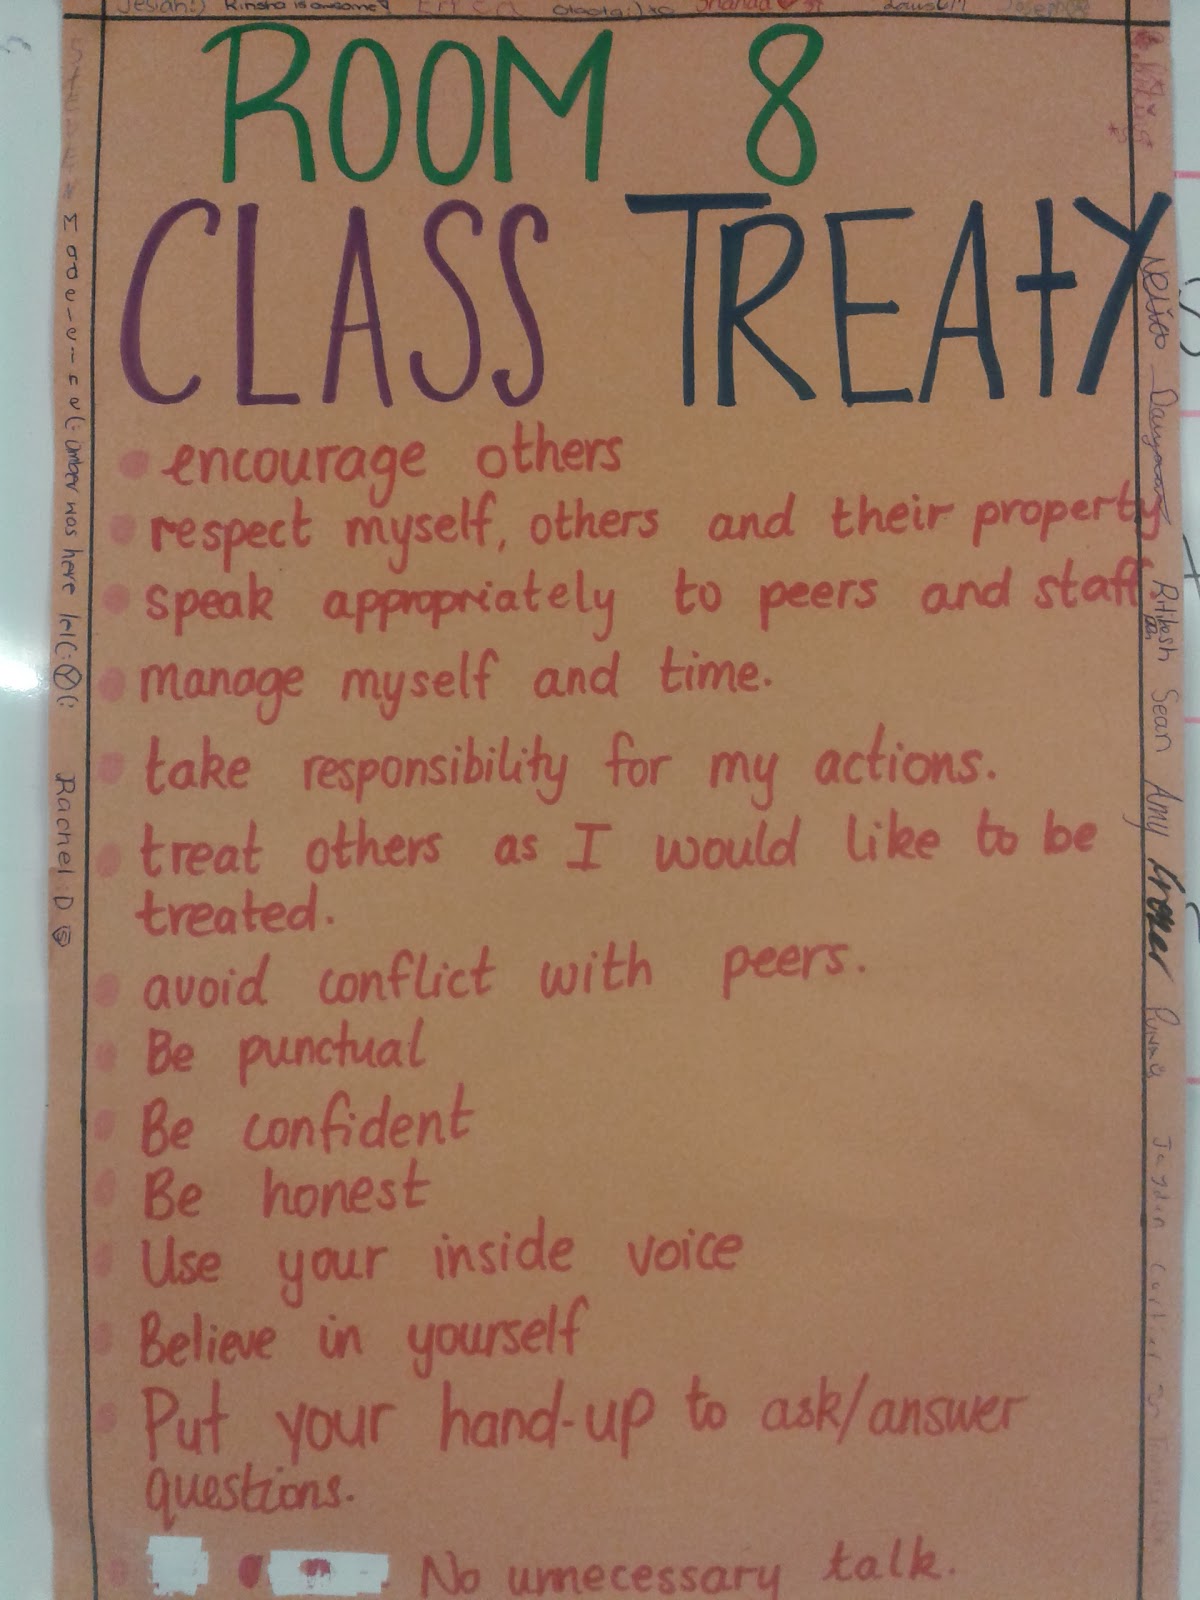 Kinsha is awesome!
ROOM 8
CLASS TREAtY
• encourage others
• respect myself, others and their property.
• speak appropriately to peers and staff.
• manage myself and time.
• take responsibility for my actions.
• treat others as I would like to be
treated.
• avoid conflict with peers.
• Be punctual
• Be confident
• Be honest
• Use your inside voice
• Believe in yourself
• Put your hand-up to ask/answer
questions.
• No unnecessary talk.
umber was here lel(:
Rachel :D
Ritikesh
Sean
Amy